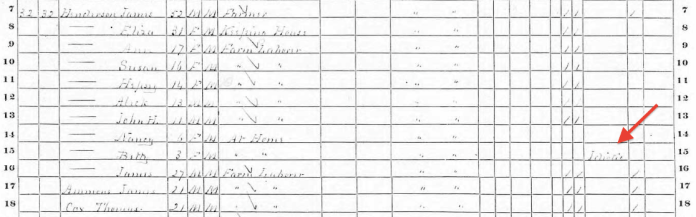 7 32 32 Henderson James 52 M M " " / / 7
8 — Eliza 31 F M Keeping House / / 8
9 — 17 F M Farm Laborer " " / / 9
10 — Susan 16 F M " " " " / / 10
11 — 14 F M " " " " / / 11
12 — Alick 13 M M " " " " / / 12
13 — John H. 11 M M " " " " / / 13
14 — Nancy 6 F M At Home " " 14
15 — Betty 3 F M " " " " / 15
16 — James 27 M M Farm Laborer " " / / 16
17 Ammons James 21 M M " " " " / / / 17
18 Cox Thomas 21 M M " " " " / / / 18